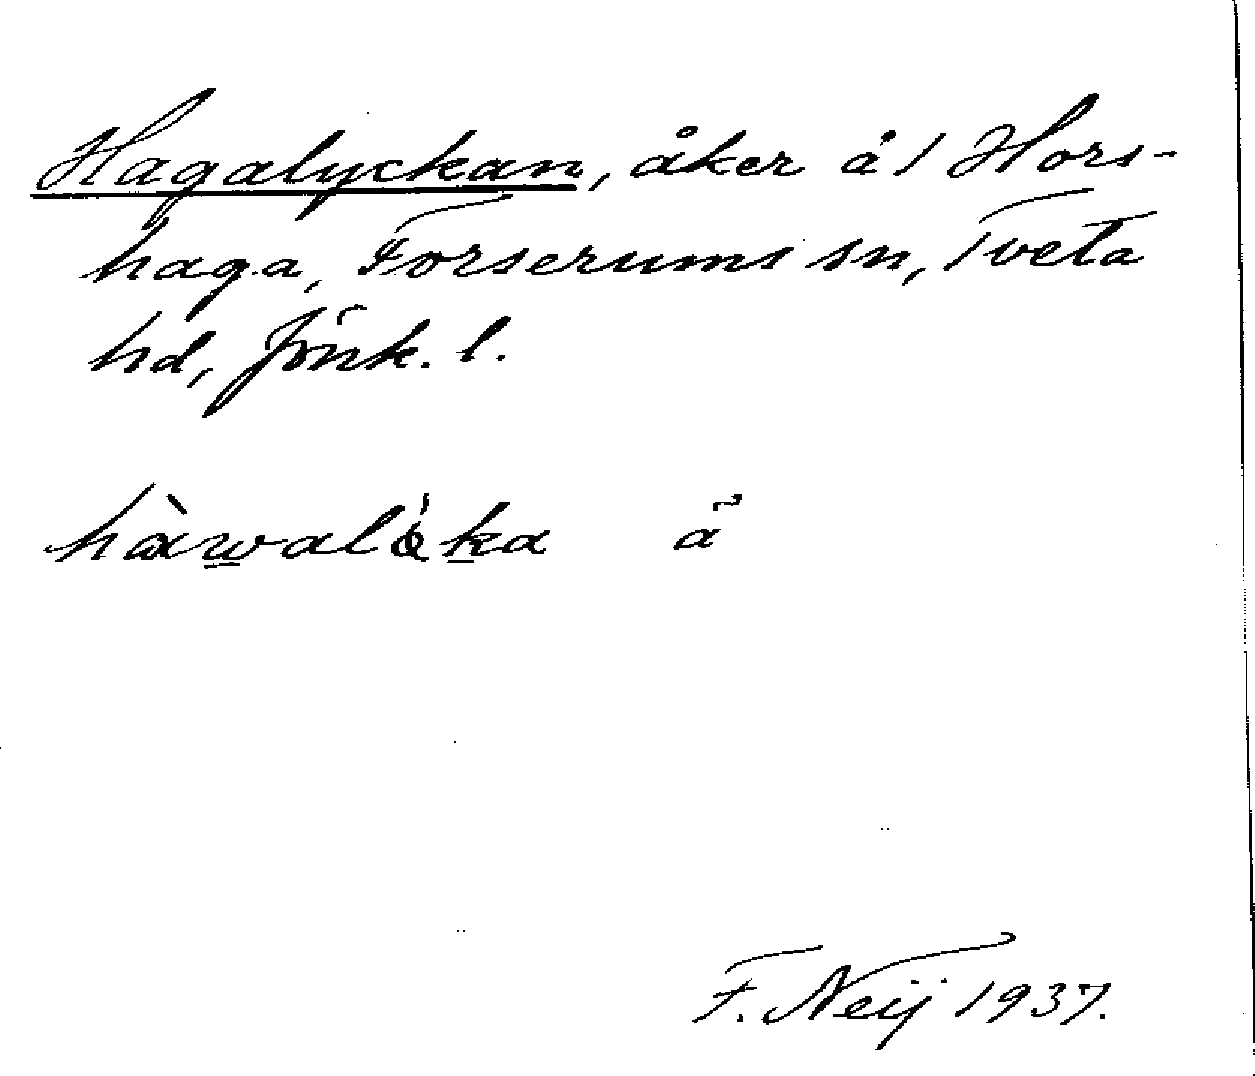 Hagalyckan, åker å 1 Hors-
haga, Forserums sn, Tveta
hd, Jönk. l.
F. Neij 1937.